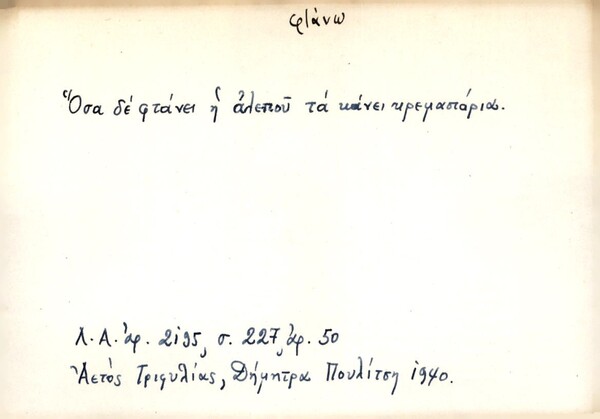 φτάνω
Ὅσα δέ φτάνει ἡ ἀλεποῦ τά κάνει κρεμαστάρια.
Λ.Α. ἀρ. 2195, σ. 227, ἀρ. 50
Ἀετός Τριφυλίας, Δήμητρα Πουλίτση 1940.